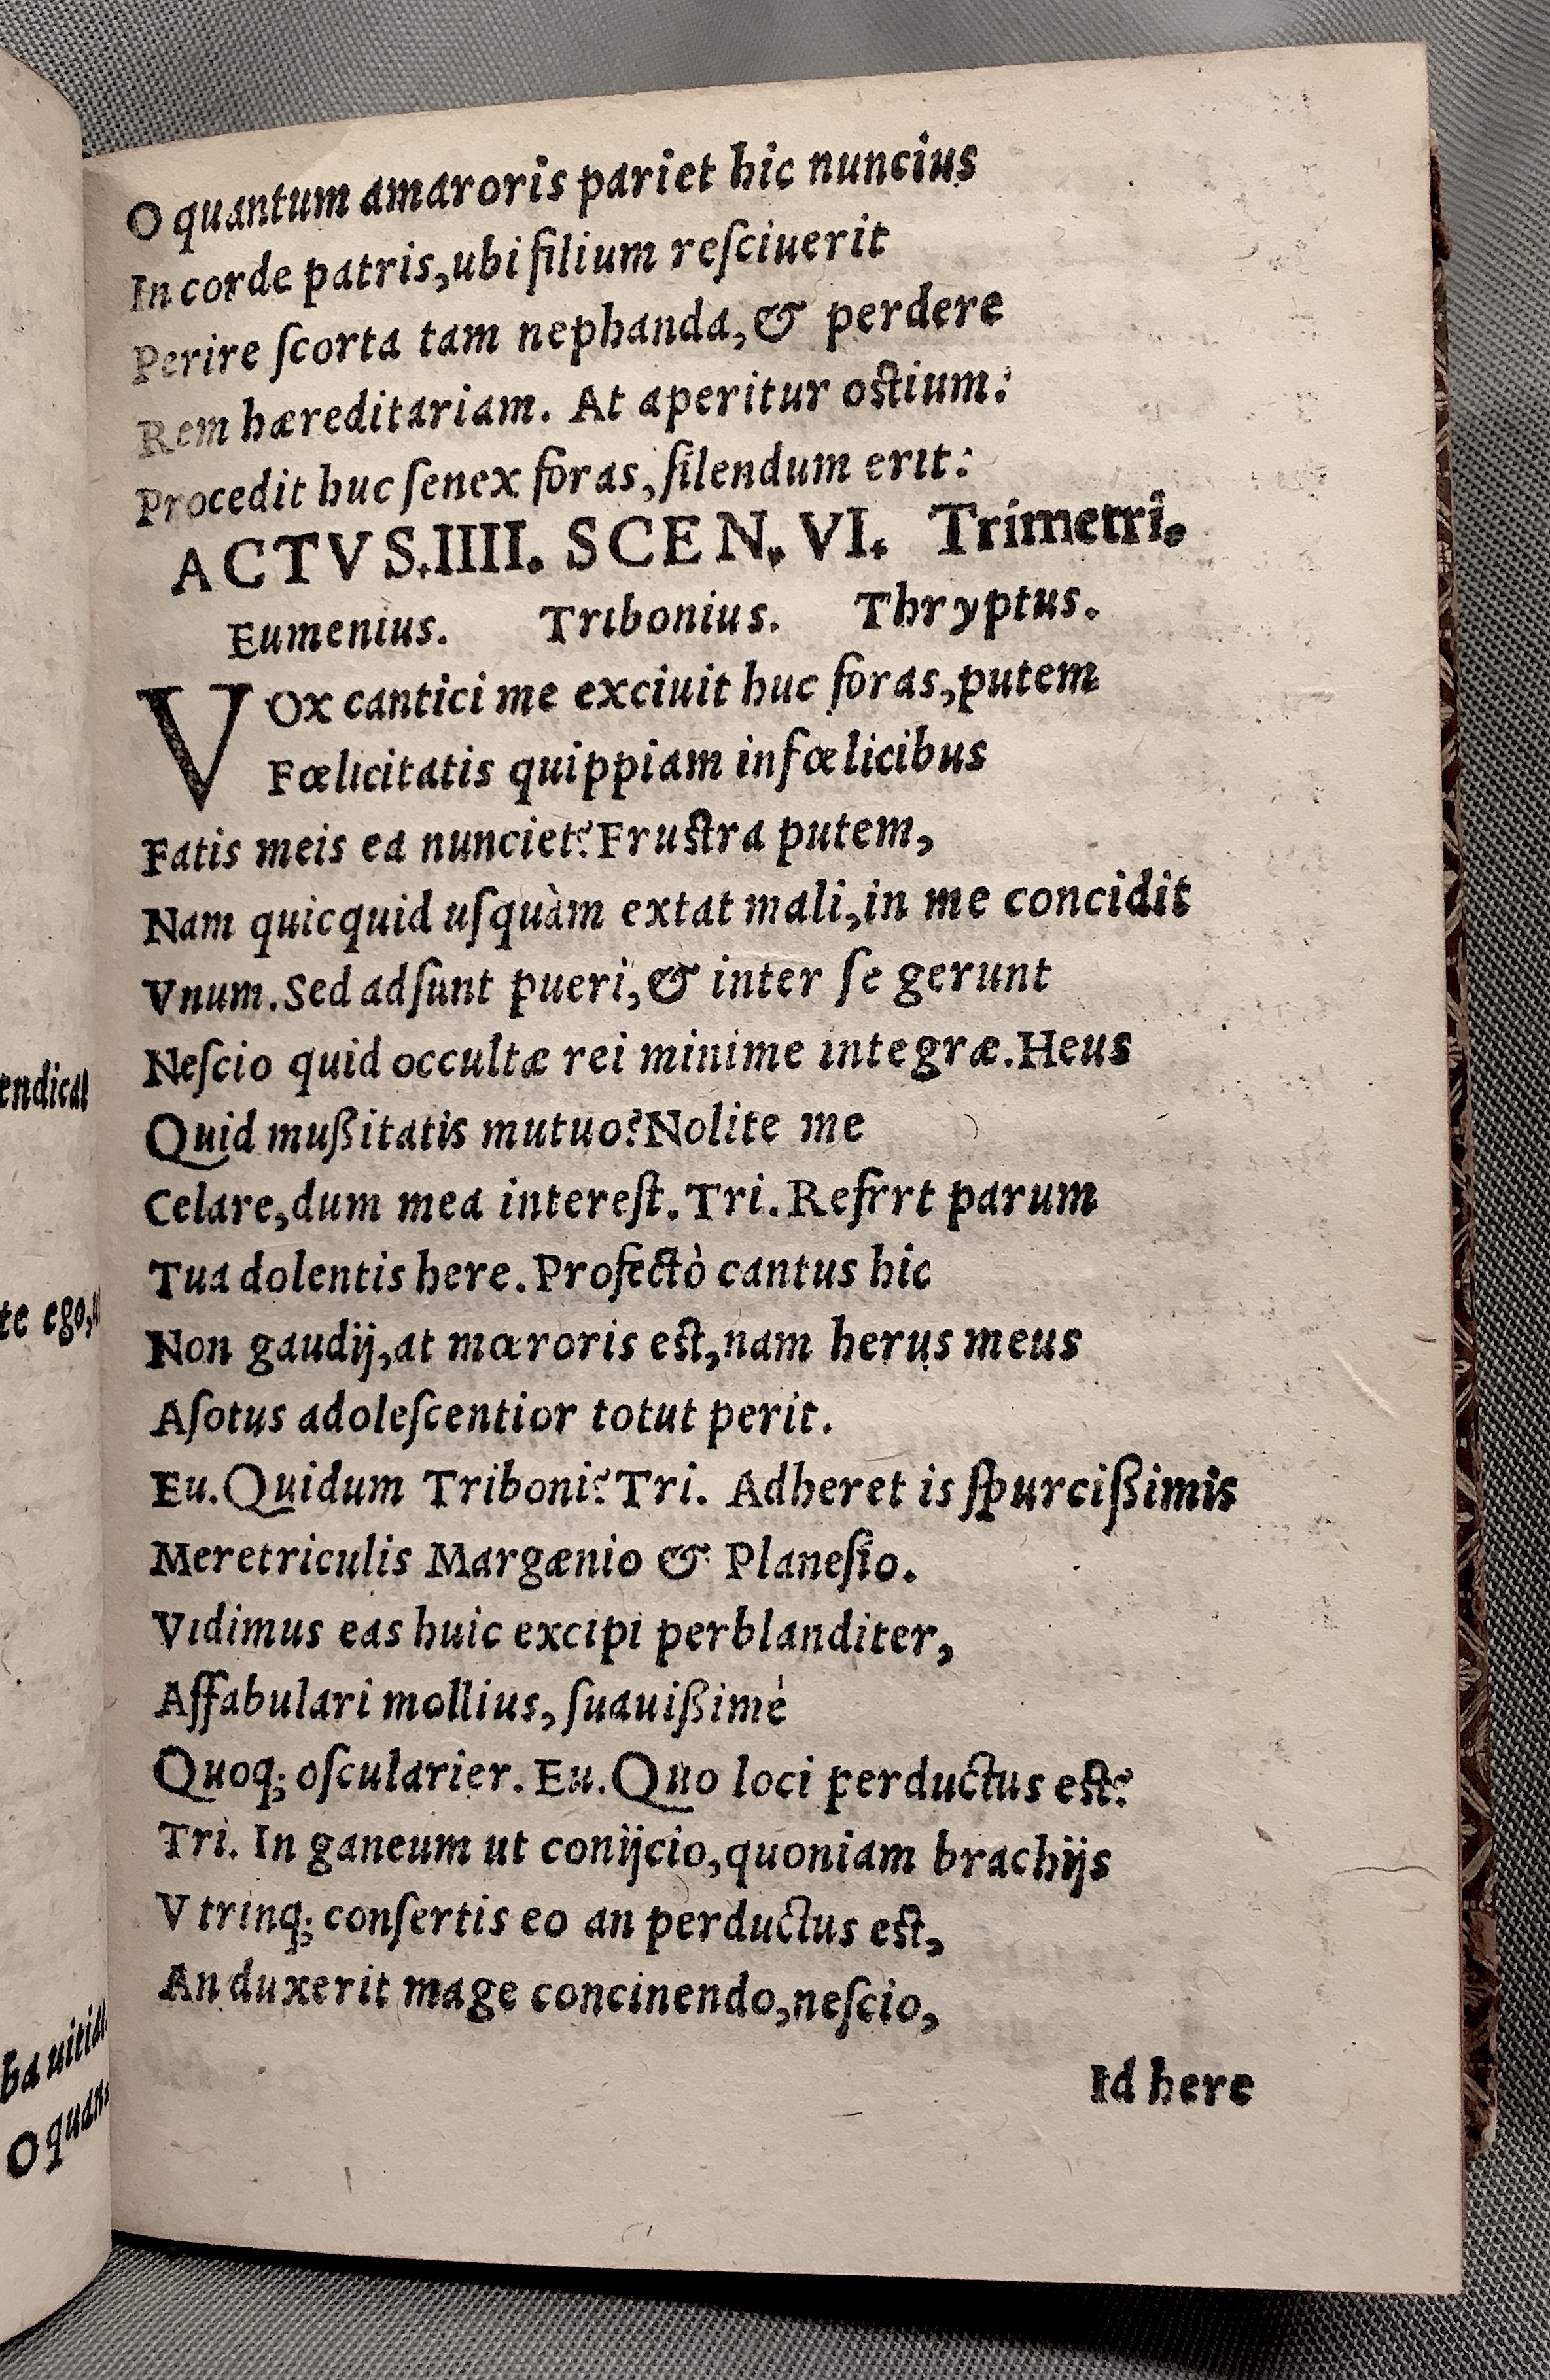 O quantum amaroris pariet hic nuncius
In corde patris,ubi filium reſciuerit
Perire ſcorta tam nephanda,& perdere
Rem hæreditariam. At aperitur oſtium:
Procedit huc ſenex foras,ſilendum erit:
ACTVS.IIII. SCEN. VI. Trimetri.
Eumenius. Tribonius. Thryptus.
VOx cantici me exciuit huc foras,putem
Fœlicitatis quippiam infœlicibus
Fatis meis ea nunciet? Fruſtra putem,
Nam quicquid uſquàm extat mali,in me concidit
Vnum. Sed adſunt pueri,& inter ſe gerunt
Neſcio quid occultæ rei minime integræ. Heus
Quid mußitatis mutuo? Nolite me
Celare,dum mea intereſt. Tri. Refrrt parum
Tua dolentis here. Profectò cantus hic
Non gaudij,at mœroris eſt,nam herus meus
Aſotus adoleſcentior totut perit.
Eu. Quidum Triboni? Tri. Adheret is ſpurcißimis
Meretriculis Margænio & Planeſio.
Vidimus eas huic excipi perblanditer,
Affabulari mollius, ſuauißimè
Quoq; oſcularier. Eu. Quo loci perductus eſt?
Tri. In ganeum ut conijcio,quoniam brachijs
Vtrinq; conſertis eo an perductus eſt,
An duxerit mage concinendo,neſcio,
Id here
endical
te ego,
ba uitia
O quan